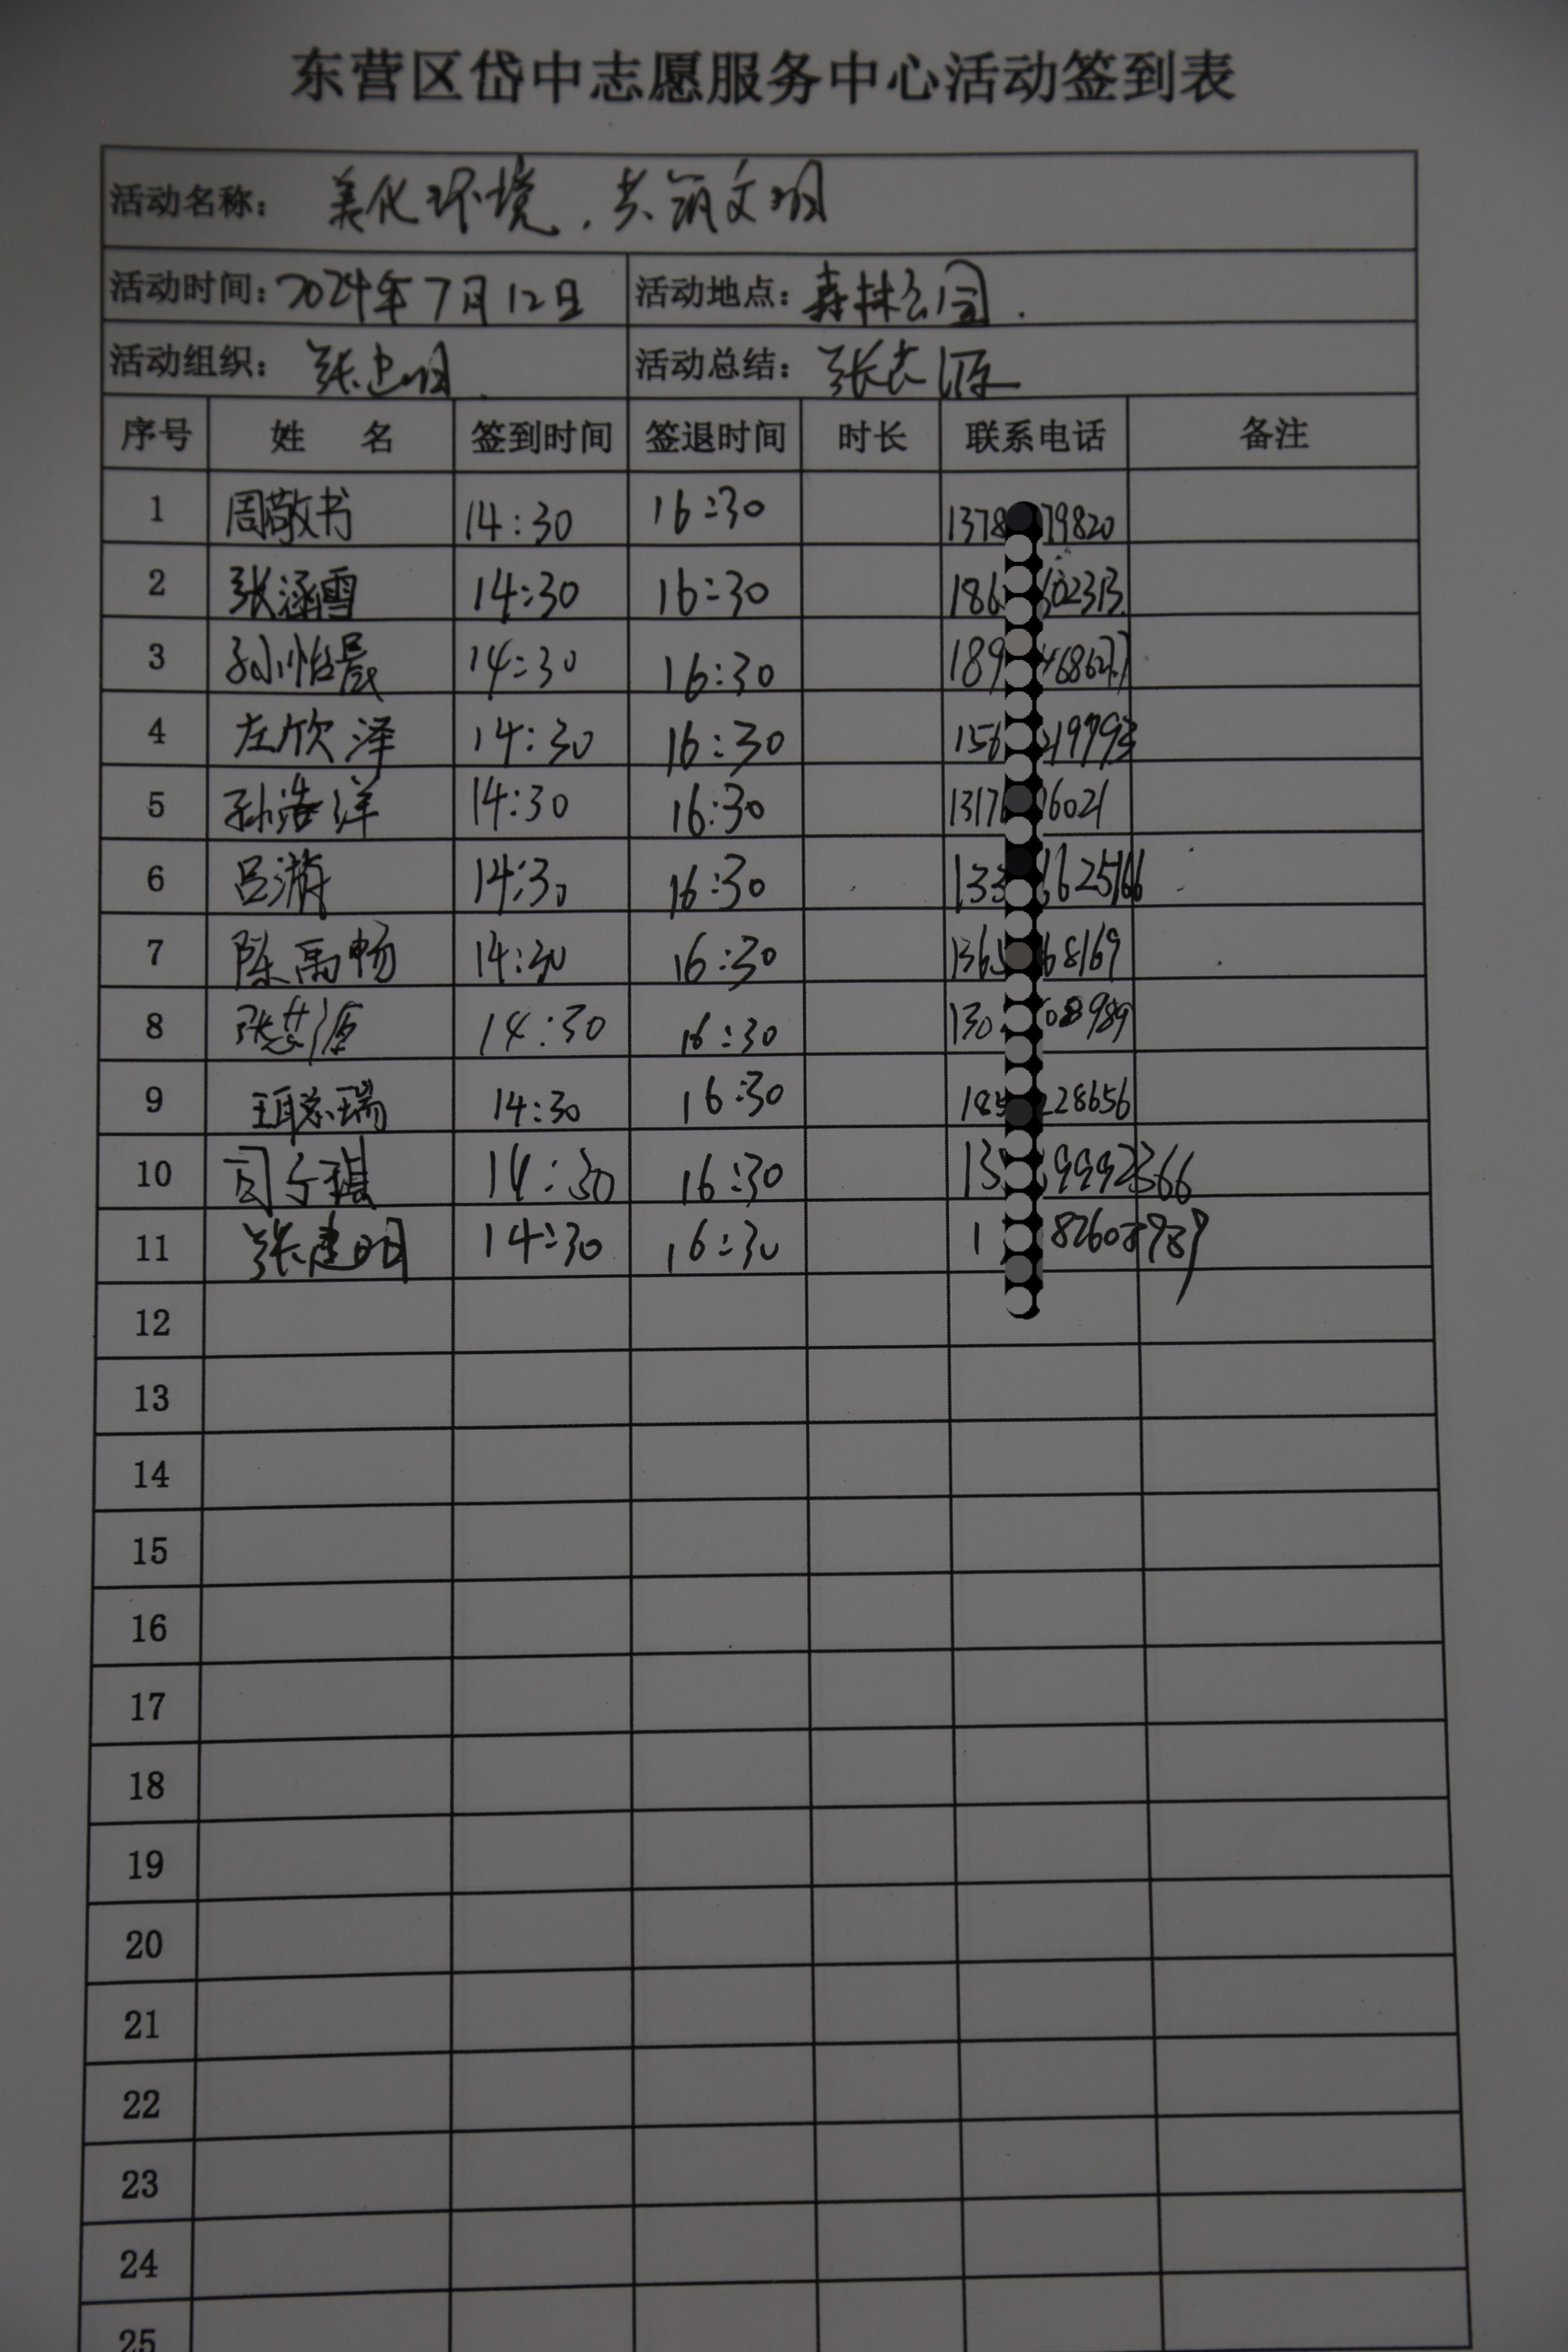 东营区岱中志愿服务中心活动签到表
活动名称： 美化环境，共筑文明
活动时间：2024年7月12日 活动地点：森林公园.
活动组织： 张建明 活动总结： 张芸源
序号 姓 名 签到时间 签退时间 时长 联系电话 备注
1 周敬书 14:30 16:30 1378 79820
2 张涵雪 14:30 16:30 186 602313
3 孙怡晨 14:30 16:30 189 468627
4 左欣泽 14:30 16:30 156 219793
5 孙浩洋 14:30 16:30 1317 6021
6 吕游 14:30 16:30 133 1625166
7 陈禹畅 14:30 16:30 136 68169
8 张芸源 14:30 16:30 130 08989
9 14:30 16:30 185 228656
10 司 14:30 16:30 13 9992366
11 张建明 14:30 16:30 1 82608989
12
13
14
15
16
17
18
19
20
21
22
23
24
25